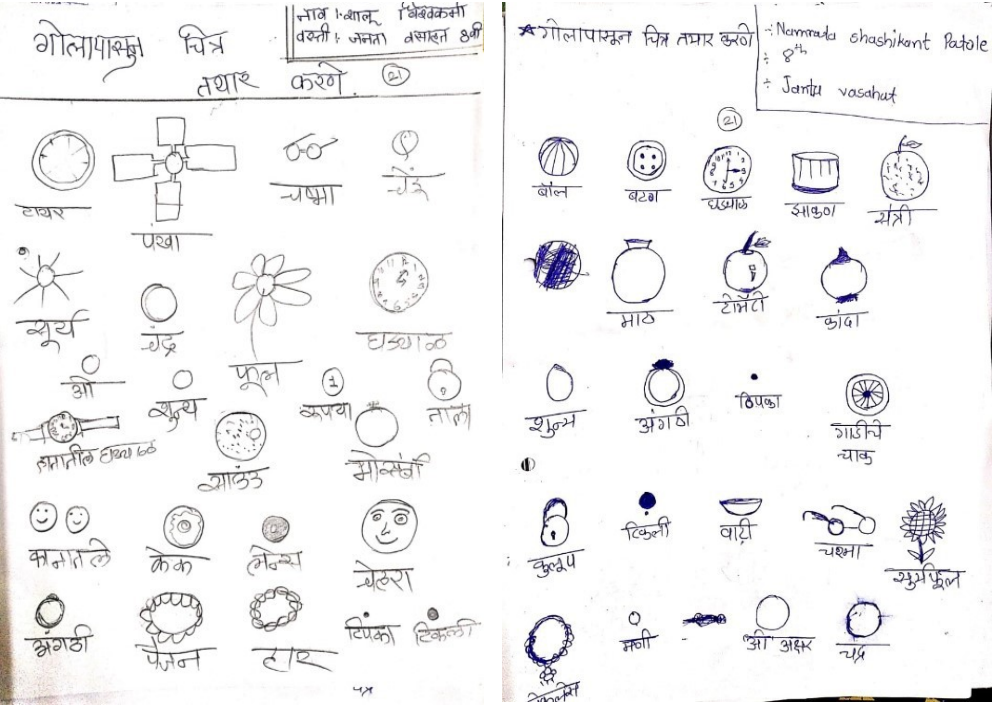 गोलापासून चित्र
तयार करणे. 21
नाव :- शालू विश्वकर्मा
वस्ती :- जनता वसाहत 8वी
टायर
पंखा
चष्मा
चेंडू
सूर्य
चंद्र
फूल
घड्याळ
ओ
शून्य
रुपया
1
ताला
हातातील घड्याळ
साउंड
मोसंबी
कानातले
केक
लेन्स
चेहरा
अंगठी
पैंजन
हार
टिपका
टिकली
गोलापासून चित्र तयार करणे
:- Narmada shashikant Patole
÷ 8th
÷ Janta vasahat
21
बॉल
बटन
घड्याळ
झाकण
संत्री
माठ
टोमॅटो
कांदा
शुन्य
अंगठी
ठिपका
गाडीचे
चाक
कुलूप
टिकली
वाटी
चश्मा
सुर्यफूल
नेकलेस
मणी
ओ अक्षर
चंद्र